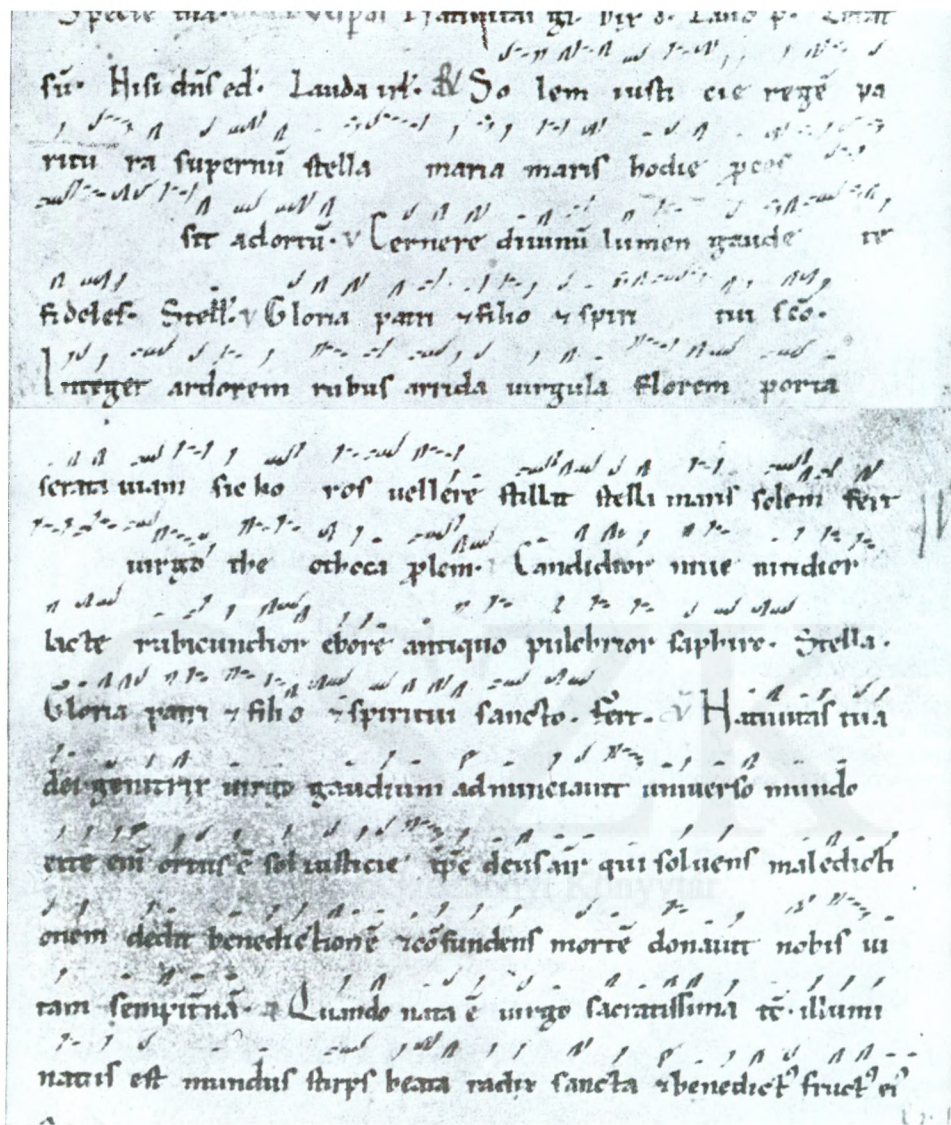 Specie tua
sū. Nisi dn̄s ed. Lauda irl. R So lem iusti cie regē pa
ritu ra supernū stella maria maris hodie
sit adortū. v Cernere diuinū lumen gaude te
fideles. Stell. v Gloria patri ⁊ filio ⁊ spiri tui scō.
Integer ardorem rubus arrida uirgula florem porta
serata uiam sic ho ros uellere stillat stella maris solem fert
uirgo the otoca plem. Candidior niue nitidior
lacte rubicundior ebore antiquo pulchrior saphiro. Stella.
Gloria patri ⁊ filio ⁊ spiritui sancto. fert. v Natiuitas tua
dei genitrix uirgo gaudium adnunciauit uniuerso mundo
ex te eni ortus ē sol iusticie xp̄c deus nr̄ qui soluens maledicti
onem dedit benedictionē ⁊ cōfundens mortē donauit nobis ui
tam sempit̄nā. a Quando nata ē uirgo sacratissima tc̄. illumi
natus est mundus stirps beata radix sancta ⁊ benedict᾽ fruct᾽ ei᾽